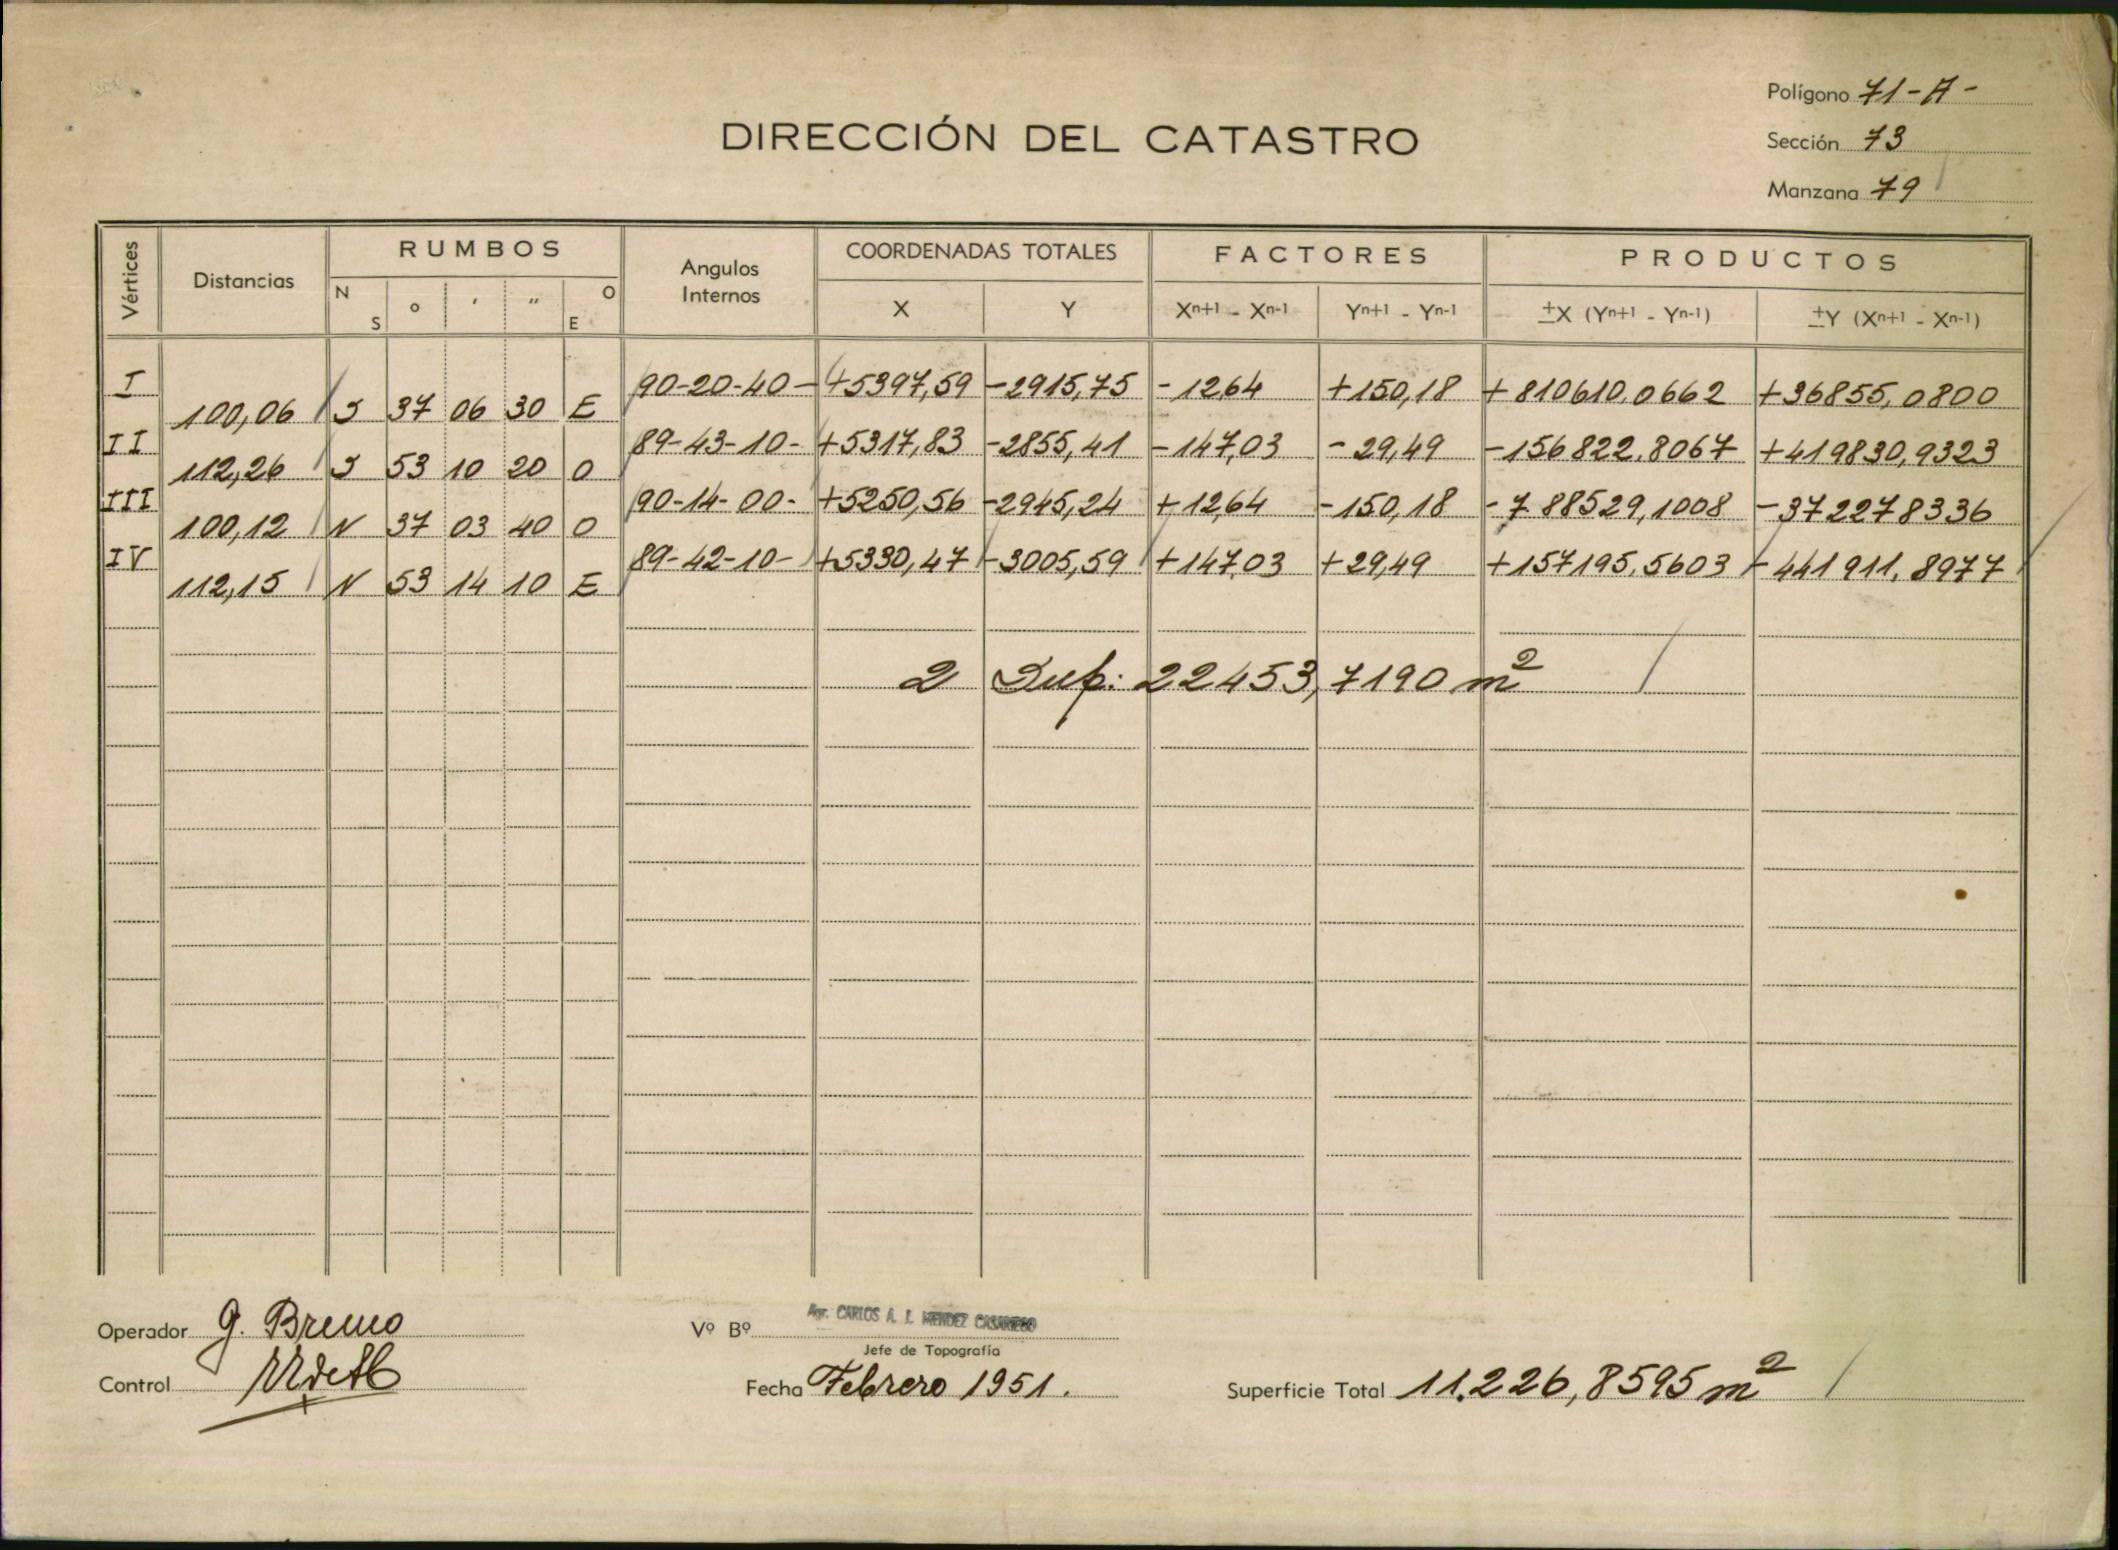 Polígono 71-A-
DIRECCIÓN DEL CATASTRO
Sección 73
Manzana 79
Vértices Distancias RUMBOS Angulos Internos COORDENADAS TOTALES FACTORES PRODUCTOS
N S ° ' " O E X Y Xn+1 - Xn-1 Yn+1 - Yn-1 ±X (Yn+1 - Yn-1) ±Y (Xn+1 - Xn-1)
I 90-20-40- +5397,59 -2915,75 -12,64 +150,18 +810610,0662 +36855,0800
100,06 S 37 06 30 E
II 89-43-10- +5317,83 -2855,41 -147,03 -29,49 -156822,8067 +419830,9323
112,26 S 53 10 20 O
III 90-14-00- +5250,56 -2945,24 +12,64 -150,18 -788529,1008 -372278336
100,12 N 37 03 40 O
IV 89-42-10- +5330,47 -3005,59 +147,03 +29,49 +157195,5603 -441911,8977
112,15 N 53 14 10 E
2 Sup: 22453,7190 m2
Operador G. Bremo
Vº Bº Agr. CARLOS A. J. MENDEZ CASARIEGO
Jefe de Topografía
Control
Fecha Febrero 1951.
Superficie Total 11.226,8595 m2